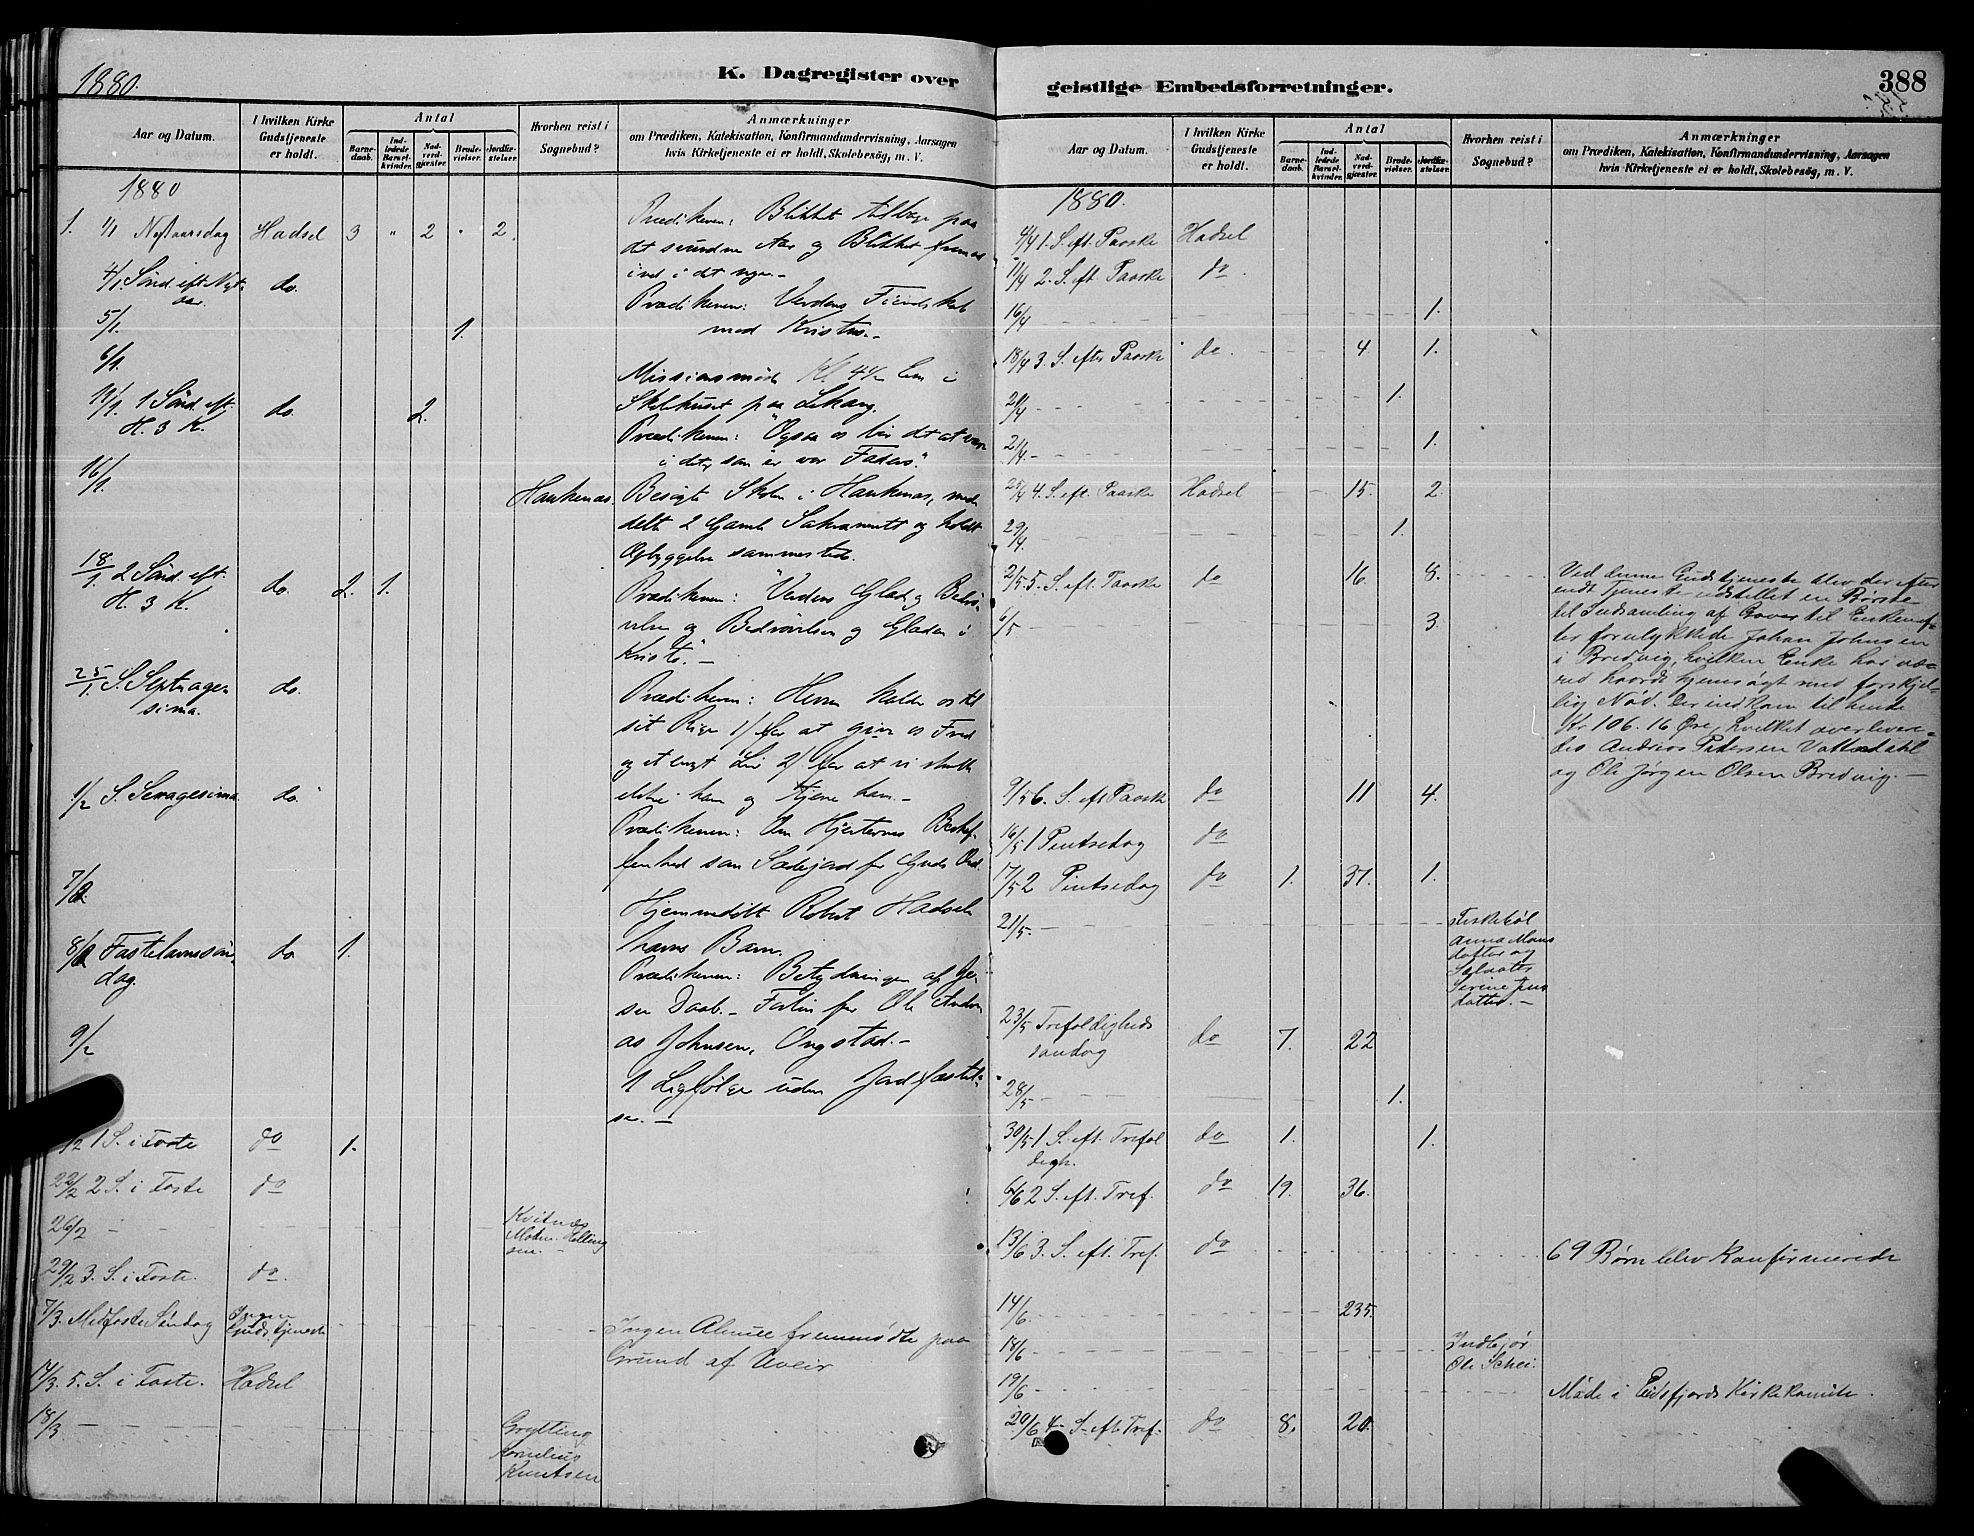 1880.
K. Dagregister over
Aar og Datum.
I hvilken Kirke
Gudstjeneste
er holdt.
Antal
Barne-
daab.
Ind-
ledede
Barsel-
kvinder.
Nad-
verd-
gjæster.
Brude-
vielser.
Jordfæ-
stelser.
Hvorhen reist i
Sognebud?
Anmærkninger
om Prædiken, Katekisation, Konfirmandundervisning, Aarsagen
hvis Kirketjeneste ei er holdt, Skolebesøg, m. V.
1880
1. 1/1 Nytaarsdag Hadsel 3 " 2 " 2.
Prædiken: Blikket tilbage paa
det svundne Aar og Blikket frem
ind i det nye.-
4/1 Sönd. eft. Nyt-
aar. do.
Prædiken: Verdens Fiendskab
mod Kristus.-
5/1. 1.
6/1.
Missionsmøde Kl. 4 1/2 Em i
Skolehuset paa
11/1. 1 Sönd. eft.
H. 3 K. do. 2.
Prædiken: "Ogsaa os bør det at være
i det, som er vor Faders."
16/1. Haukenæs.
Besøgte Skolen i Haukenæs, med
delte 2 Gamle Sakramentet og holdt
Opbyggelse sammesteds.
18/1. 2 Sönd. eft.
H. 3 K. do. 2. 1.
Prædiken: "Verdens Glæde og Bedrö-
velse og Bedrövelsen og Glæden i
Kristo."-
25/1. S. Septuage-
sima. do.
Prædiken: Herren kalder os til
sit Rige 1/ for at give os Fred
og et evigt Liv 2/ for at vi skulle
elske ham og tjene ham.-
1/2 S. Sexagesima do.
Prædiken: Om Hjerternes Beskaf-
fenhed som Sædejord for Guds Ord.
7/2.
Hjemmedöbt Robert Hadsel-
havns Barn.
8/2 Fastelavnssøn-
dag. do 1.
Prædiken: Betydningen af Je-
su Daab.- Forlin for Ole Andre
as Johnsen, Ongstad.-
9/2
1 Ligfölge uden Jordfæstel-
se.-
/2 1 S. i Faste do 1.
22/2 2 S. i Faste do
26/2 - Kvitnæs
29/2 3. S. i Faste. do.
7/3. Midfaste Søndag Ingen
Gudstjeneste
Ingen Almue fremmødte paa
Grund af Uveir
14/3. 5. S. i Faste. Hadsel
18/3 - Grytting
Kornelius
Knutsen
geistlige Embedsforretninger.
388
Aar og Datum.
I hvilken Kirke
Gudstjeneste
er holdt.
Antal
Barne-
daab.
Ind-
ledede
Barsel-
kvinder.
Nad-
verd-
gjæster.
Brude-
vielser.
Jordfæ-
stelser.
Hvorhen reist i
Sognebud?
Anmærkninger
om Prædiken, Katekisation, Konfirmandundervisning, Aarsagen
hvis Kirketjeneste ei er holdt, Skolebesøg, m. V.
1880.
4/4 1. S. eft. Paaske Hadsel
11/4 2. S. eft. Paaske do.
16/4 1.
18/4 3. S. efter Paaske do. 4. 1.
1.
21/4.- 1.
25/4 4. S. eft. Paaske Hadsel 15. 2.
29/4. 1.
2/5 5. S. eft. Paaske do 16. 8.
Ved denne Gudstjeneste blev der efter
endt Tjeneste udstillet en Børste
til Indsamling af Gaver til Enken ef-
ter forulykkede Johan Johnsen
i Bredvig, hvilken Enke har væ-
ret haardt hjemsøgt med forskjel-
lig Nød. Der indkom til hende
Kr 106. 16 Øre, hvilket overlever-
des Andreas Pedersen Vottedahl
og Ole Jørgen Olsen Bredvig.-
6/5 3.
9/5 6. S. eft Paaske do 11 4.
16/5 1 Pintsedag do
17/5 2 Pintsedag do 1. 37. 1.
21/5. - Fiskebøl
Anna Mons
datter og
Serine Jens
datter.-
23/5 Trefoldigheds
søndag do 7. 22
28/5- 1.
30/5 1 S. eft. Trefol
digh. do 1. 1.
6/6 2 S. eft. Tref. do 19. 36.
13/6 3. S. eft. Tref. do
69 Børn blev Konfirmerede
14/6. 235.
18/6 Indbjør
Ole Schei.
19/6 -
Møde i Eidsfjords Kirkekomite.
20/6 4- S. eft. Tref. do 8. 20.